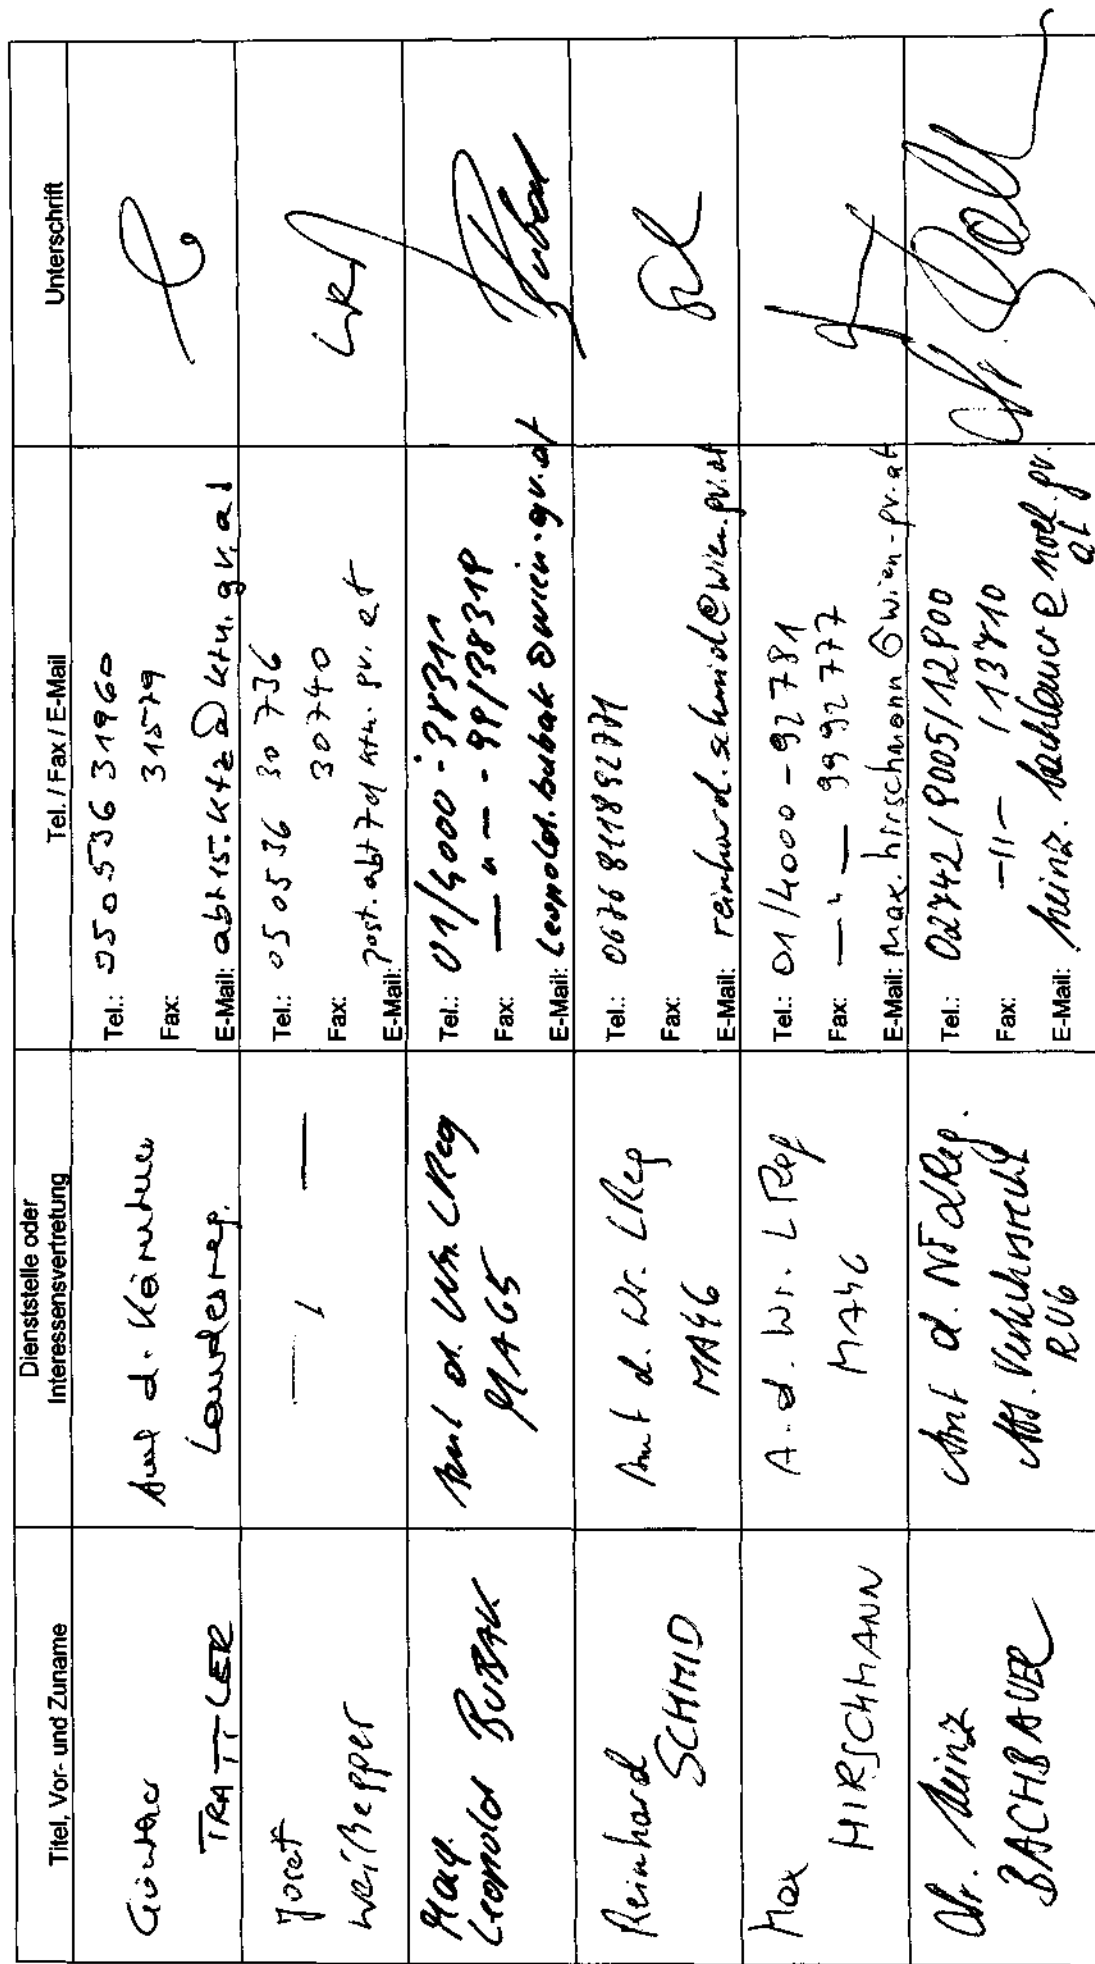 Titel, Vor- und Zuname
Dienststelle oder
Interessensvertretung
Tel. / Fax / E-Mail
Unterschrift
Günther
TRATTLER
Amt d. Kärntner
Landesreg.
Tel.: 050536 31960
Fax: 31579
E-Mail: abt15.ktz@ktn.gv.at
Josef
Weißegger
— " —
Tel.: 05 05 36 30 736
Fax: 30740
E-Mail: post.abt7@ktn.gv.at
Mag.
Leopold BUBAK
Amt d. Wr. LReg
MA65
Tel.: 01/4000-38311
Fax: — " — - 99/38319
E-Mail: leopold.bubak@wien.gv.at
Reinhard
SCHMID
Amt d. Wr. LReg
MA46
Tel.: 0676811892771
Fax:
E-Mail: reinhard.schmid@wien.gv.at
Max
HIRSCHMANN
A. d. Wr. LReg
MA46
Tel.: 01/4000-92781
Fax: — " — 9992777
E-Mail: max.hirschmann@wien.gv.at
Dr. Heinz
BACHBAUER
Amt d. NÖ LReg.
Abt. Verkehrsrecht
RU6
Tel.: 02742/9005/12900
Fax: -"- /13710
E-Mail: heinz.bachbauer@noel.gv.
at